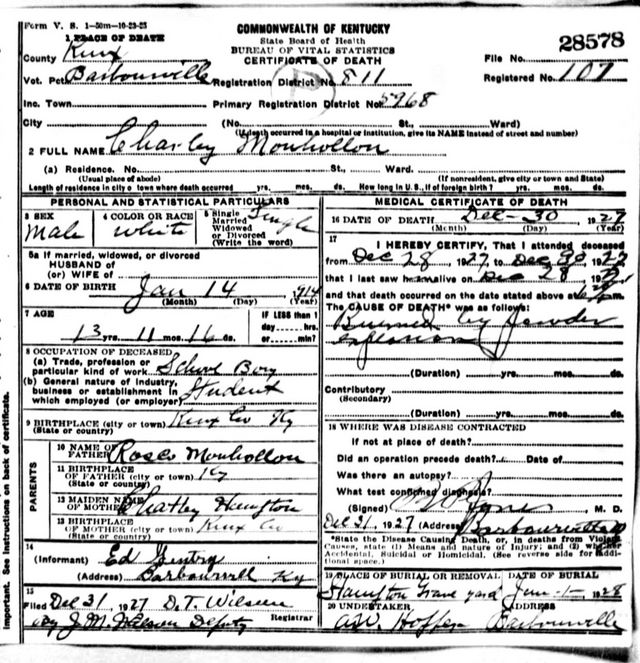 Form V. S. 1-50m-10-23-25
COMMONWEALTH OF KENTUCKY
State Board of Health
BUREAU OF VITAL STATISTICS
CERTIFICATE OF DEATH
1 PLACE OF DEATH
County Knox
File No. 28578
Vot. Pct Barbourville Registration District No. 811
Registered No. 107
Inc. Town Primary Registration District No. 5968
City (No. St., Ward)
(If death occurred in a hospital or institution, give its NAME instead of street and number)
2 FULL NAME Charley Monhollon
(a) Residence. No. St., Ward.
(Usual place of abode) (If nonresident, give city or town and State)
Length of residence in city or town where death occurred yrs. mos. ds. How long in U. S., if of foreign birth? yrs. mos. ds.
PERSONAL AND STATISTICAL PARTICULARS
3 SEX
Male
4 COLOR OR RACE
White
5 Single Married Widowed or Divorced (Write the word)
Single
5a If married, widowed, or divorced
HUSBAND of
(or) WIFE of
6 DATE OF BIRTH Jan 14 1914
(Month) (Day) (Year)
7 AGE
13 yrs. 11 mos. 16 ds.
IF LESS than 1
day hrs.
or min?
8 OCCUPATION OF DECEASED
(a) Trade, profession or
particular kind of work School Boy
(b) General nature of industry,
business or establishment in
which employed (or employer) Student
9 BIRTHPLACE (city or town) Knox Co Ky
(State or country)
PARENTS
10 NAME OF
FATHER Rosco Monhollon
11 BIRTHPLACE
OF FATHER (city or town) Ky
(State or country)
12 MAIDEN NAME
OF MOTHER Hampton
13 BIRTHPLACE
OF MOTHER (city or town) Knox Co
(State or country)
14
(Informant) Ed Gentry
(Address) Barbourvill Ky
15
Filed Dec 31, 1927 D. T. Wilson
Registrar
By J. M. Wilson Deputy
MEDICAL CERTIFICATE OF DEATH
16 DATE OF DEATH Dec-30 1927
(Month) (Day) (Year)
17
I HEREBY CERTIFY, That I attended deceased
from Dec 28 1927 to Dec 30 1927
that I last saw him alive on Dec 28
and that death occurred on the date stated above at
The CAUSE OF DEATH* was as follows:
Burned by Powder
explosion
(Duration) yrs. mos. ds.
Contributory
(Secondary)
(Duration) yrs. mos. ds.
18 WHERE WAS DISEASE CONTRACTED
If not at place of death?
Did an operation precede death? Date of
Was there an autopsy?
What test confirmed diagnosis?
(Signed) Jones M. D.
Dec 31, 1927 (Address) Barbourville
*State the Disease Causing Death, or, in deaths from Violent
Causes, state (1) Means and nature of Injury; and (2) whether
Accidental, Suicidal or Homicidal. (See reverse side for addi-
tional space.)
19 PLACE OF BURIAL OR REMOVAL DATE OF BURIAL
Hampton Grave yard Jan-1- 1928
20 UNDERTAKER ADDRESS
Hopper Barbourville
Important. See instructions on back of certificate.